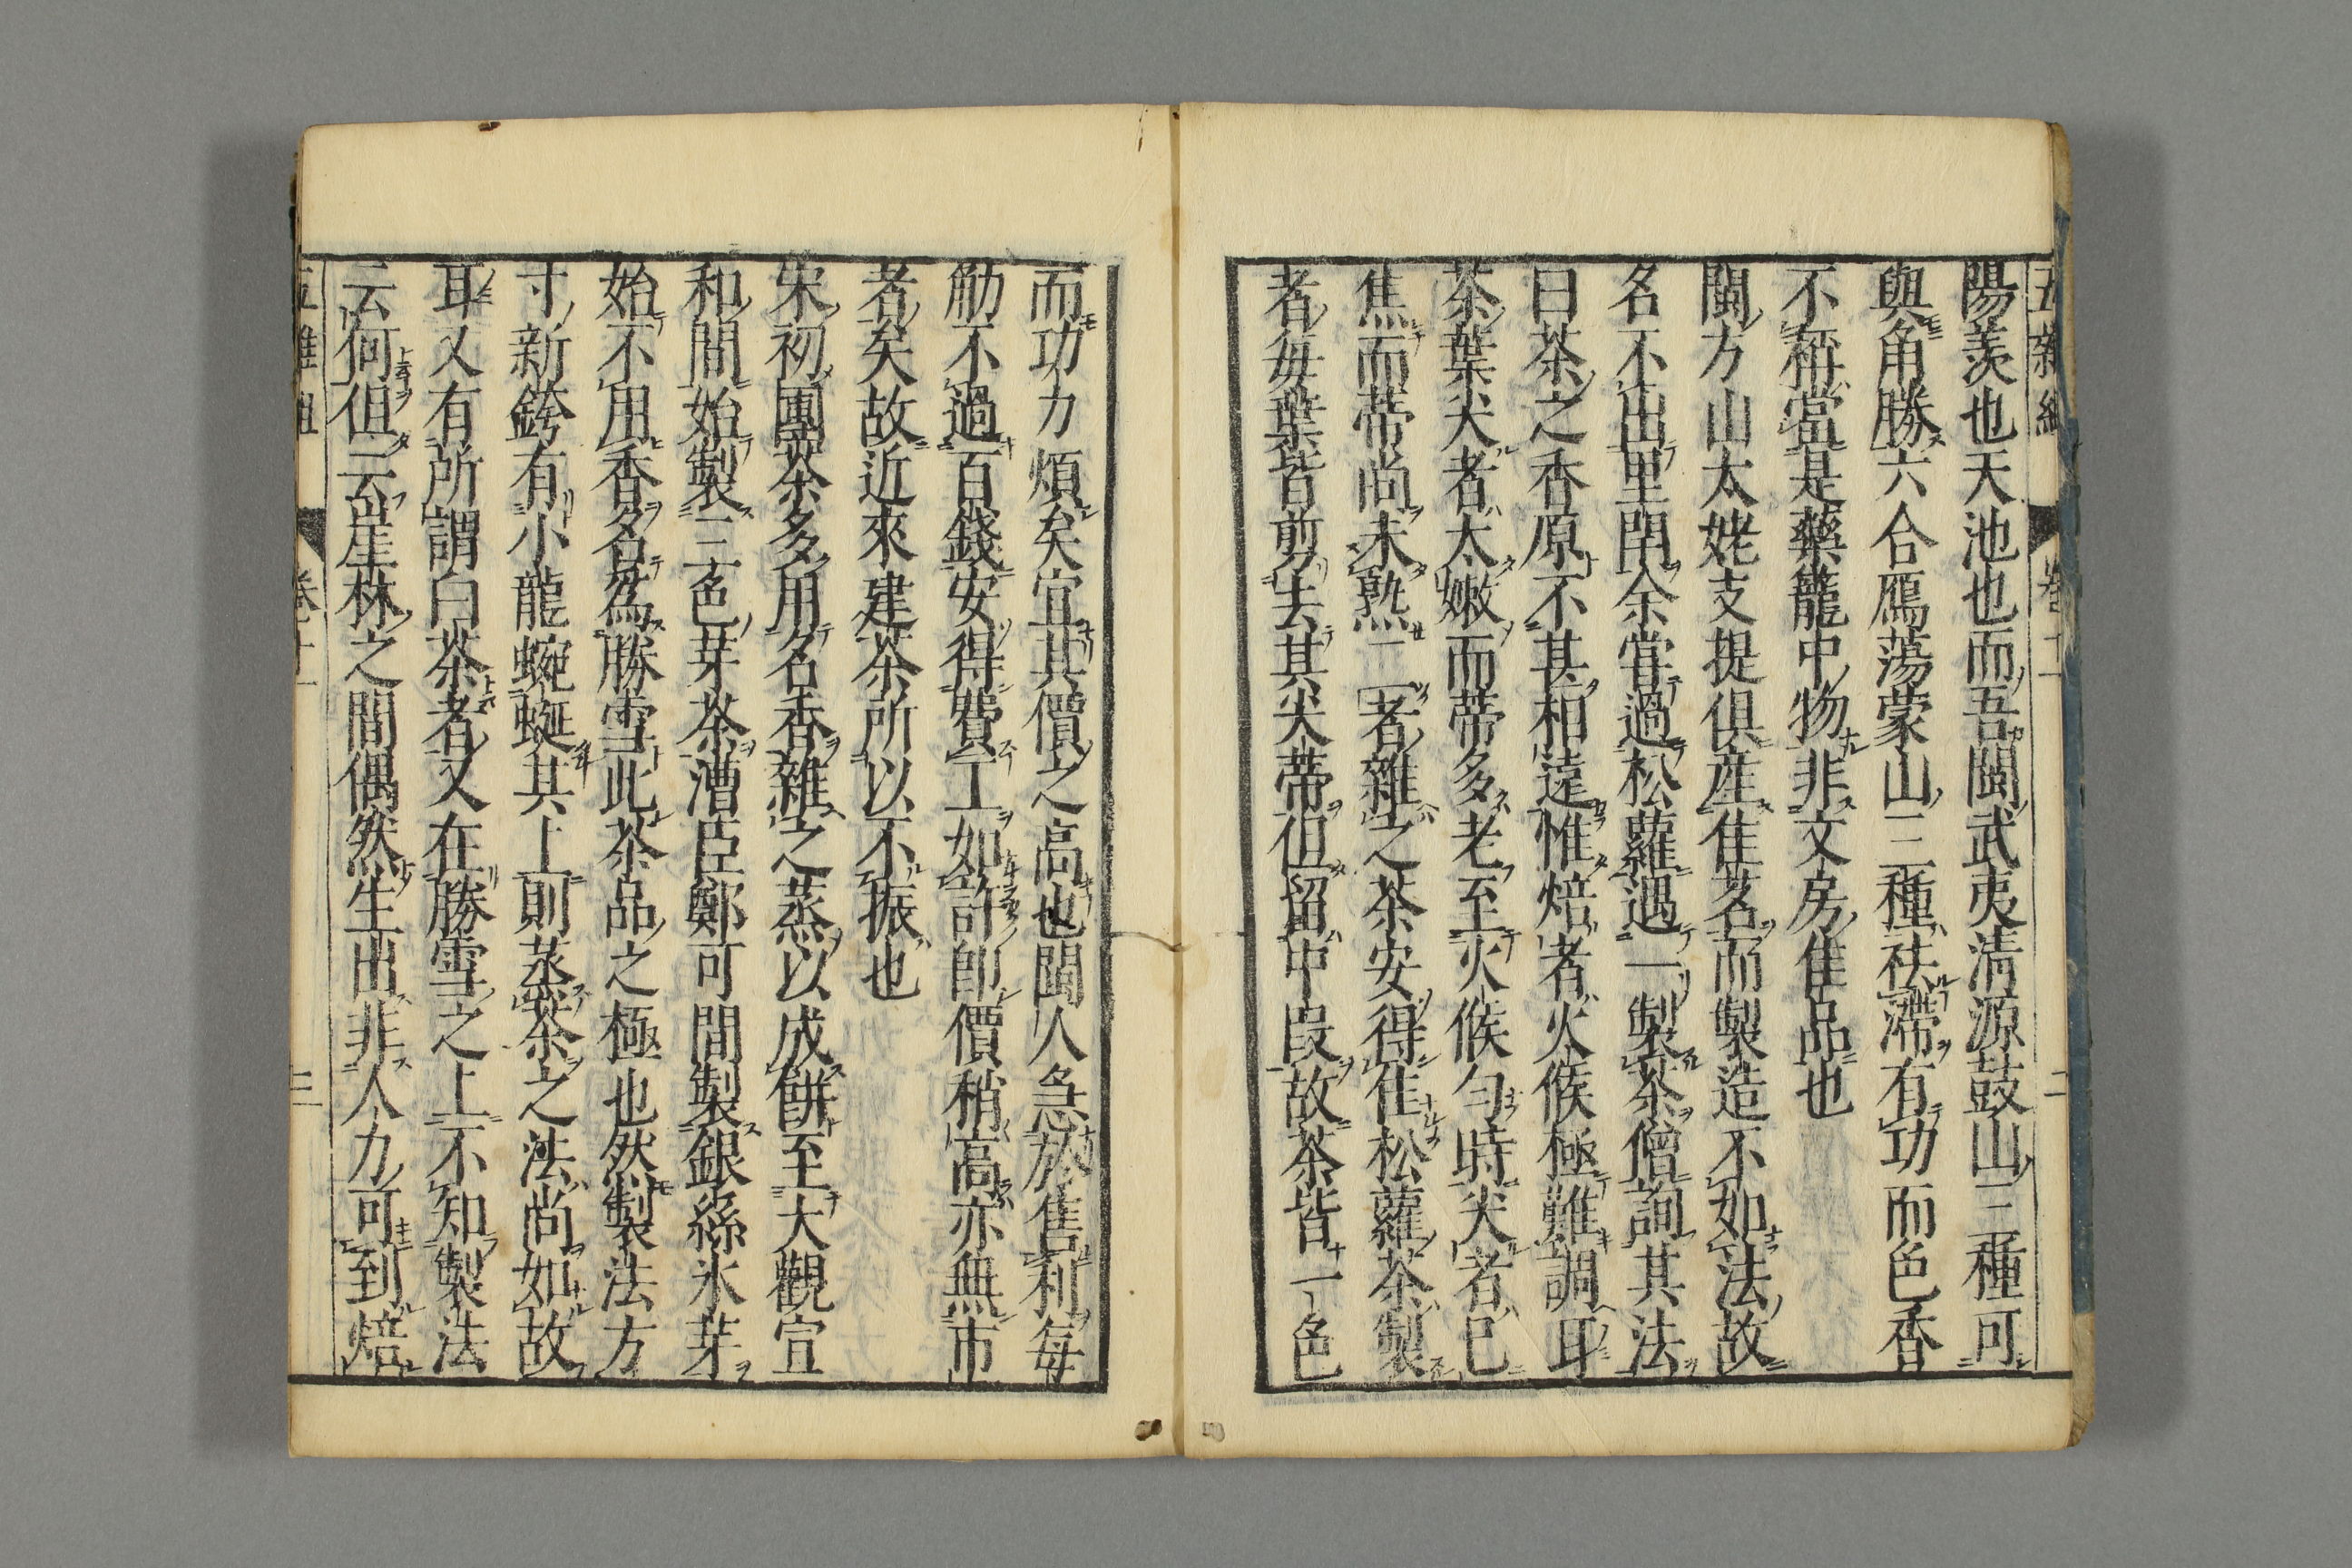 五雜組 卷十一 二
陽羨也天池也而吾閩武夷清源鼓山三種可
與角勝六合鴈蕩蒙山三種祛滯有功而色香
不稱當是藥籠中物非文房佳品也
閩方山太姥支提俱産佳茗而製造不如法故
名不出里閈余嘗過松蘿遇一製茶僧詢其法
曰茶之香原不甚相遠惟焙者火候極難調耳
茶葉尖者太嫩而蒂多老至火候勻時尖者已
焦而蒂尚未熟二者雜之茶安得佳松蘿茶製
者毎葉皆剪去其尖蒂但留中段故茶皆一色
而功力煩矣宜其價之高也閩人急於售利每
觔不過百錢安得費工如許即價稍高亦無市
者矣故近來建茶所以不振也
宋初團茶多用名香雜之蒸以成餅至大觀宣
和間始製三色芽茶漕臣鄭可間製銀絲氷芽
始不用香名爲勝雪此茶品之極也然製法方
寸新銙有小龍蜿蜒其上則蒸茶之法尚如故
耳又有所謂白茶者又在勝雪之上不知製法
云何但云崖林之間偶然生出非人力可到焙
五雜組 卷十一 三